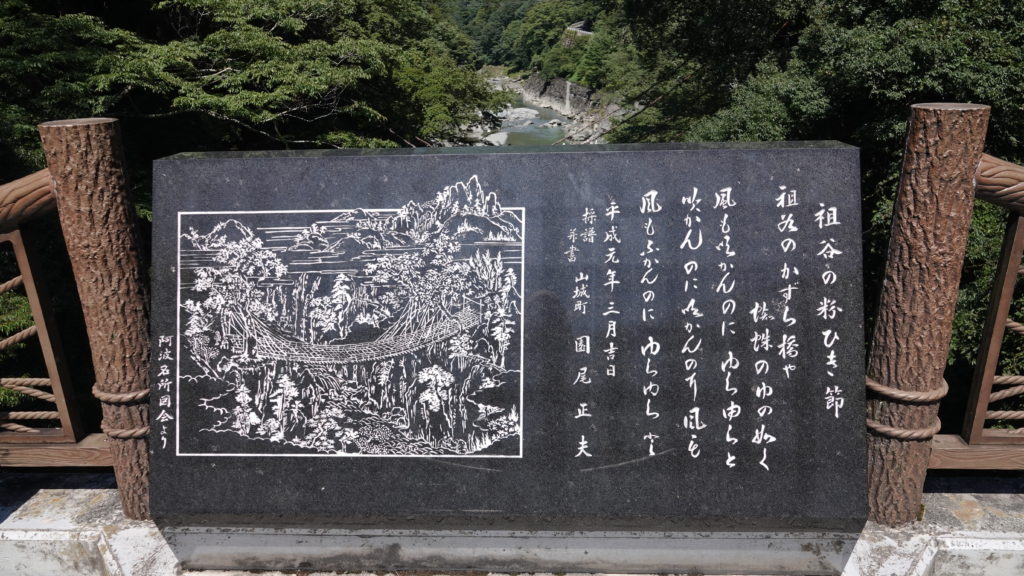 祖谷の粉ひき節
祖谷のかずら橋や
蜘蛛のゆの如く
風も吹かんのに ゆらゆらと
吹かんのに 吹かんのに 風も
風もふかんのに ゆらゆらと
平成元年三月吉日
採譜
並書
山城町 園尾正夫
阿波名所図会より